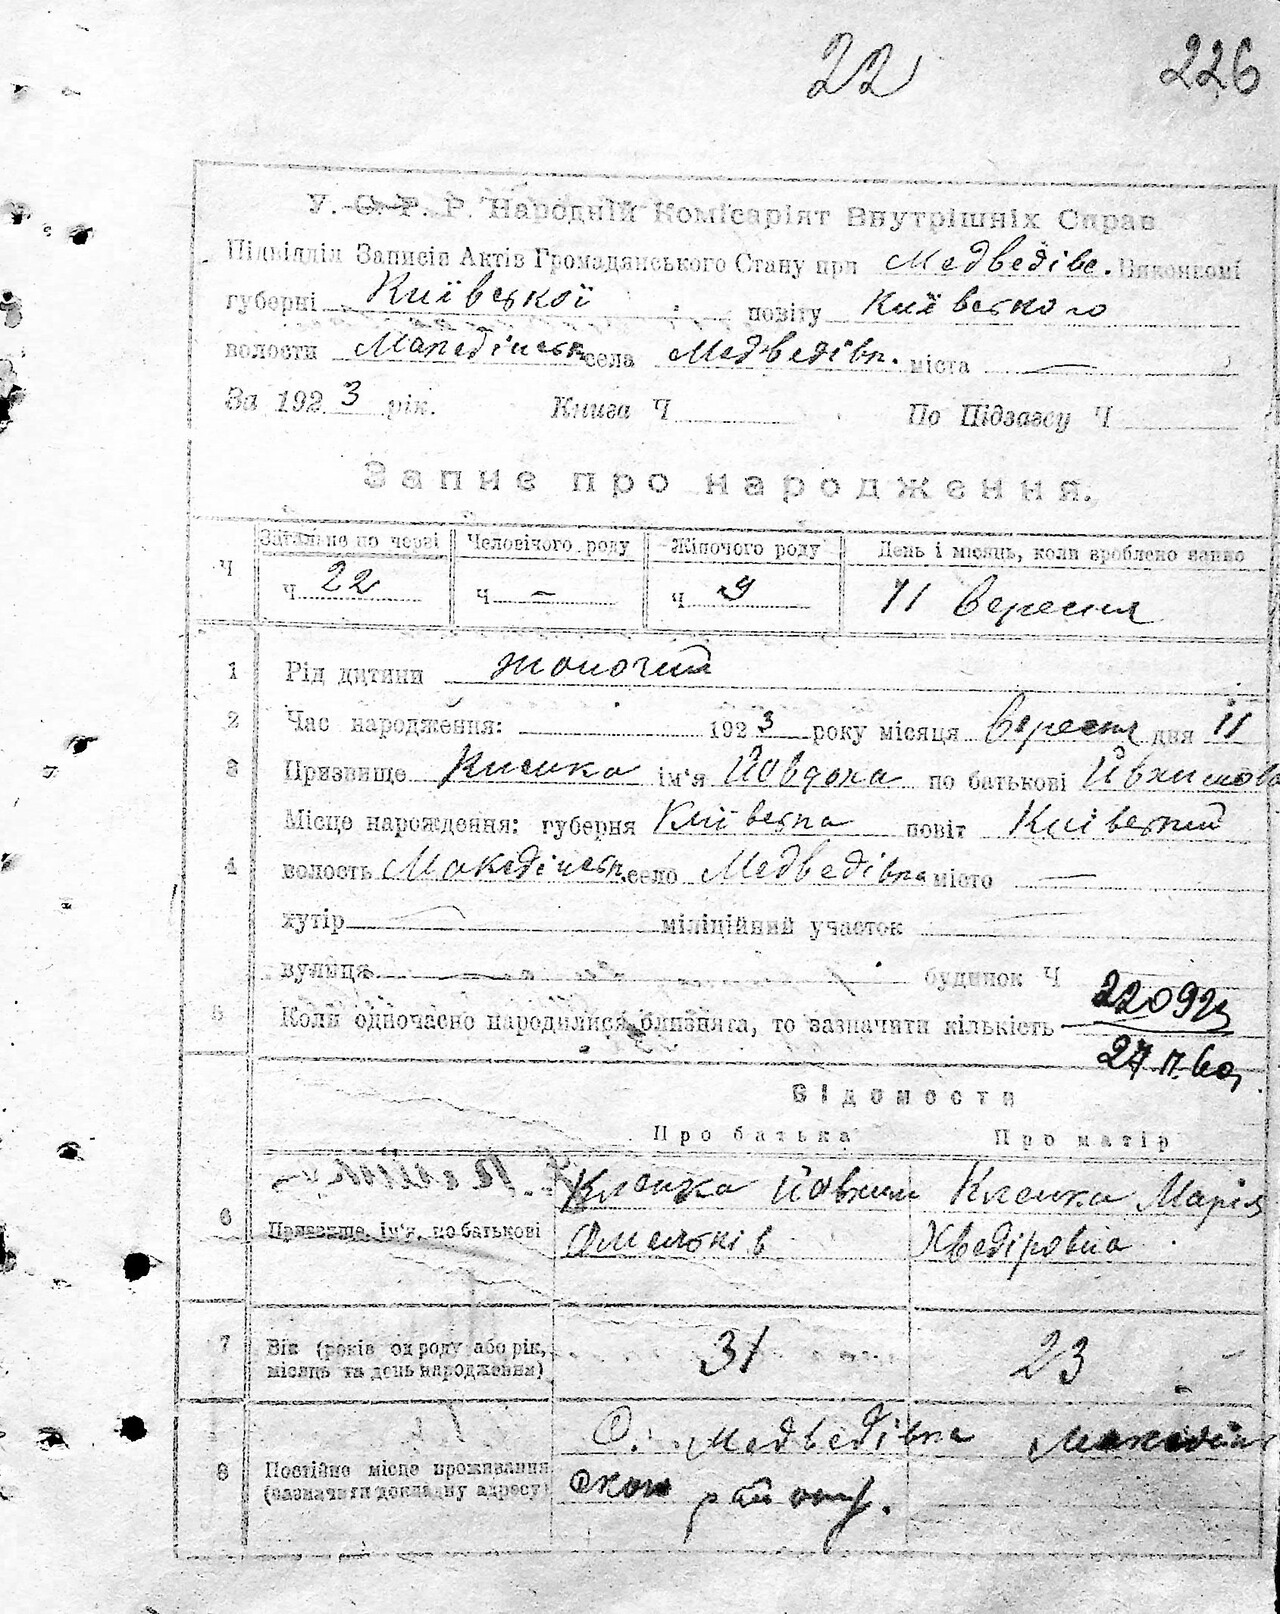 22 226
У. С. Р. Р. Народній Комісаріят Внутрішніх Справ
Підвідділ Записів Актів Громадянського Стану при Медведівс. Виконкомі
губерні Київської повіту Київського
волости села Медведівк. міста —
За 1923 рік. Книга Ч По Підзагсу Ч
Запис про народження.
Загально по черзі Чоловічого роду Жіночого роду День і місяць, коли зроблено запис
Ч Ч 22 Ч — Ч 9 11 вересня
1 Рід дитини жоночий
2 Час народження: 1923 року місяця вересня дня 11
3 Призвище ім'я Йовдоха по батькові
Місце народження: губерня Київська повіт Київський
4 волость село Медведівка місто —
хутір — міліційний участок —
вулиця — будинок Ч
5 Коли одночасно народилися близнята, то зазначити кількість
Відомости
Про батька Про матір
Йовхим Марія
6 Призвище, ім'я, по батькові Хведіровна
7 Вік (років од роду або рік, місяць та день народження) 31 23
С. Медведівка
8 Постійне місце проживання
(зазначити докладну адресу) району.